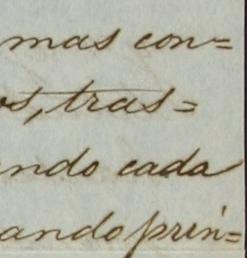 mas con=
os, tras=
ando cada
ando prin=